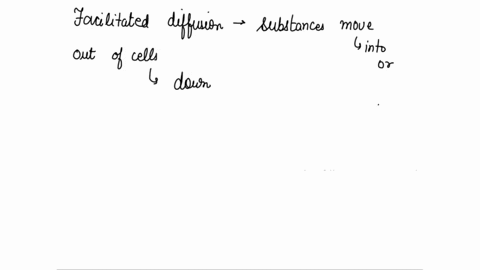 Facilitated diffusion → substances move
↳ into
out of cells
or
↳ down